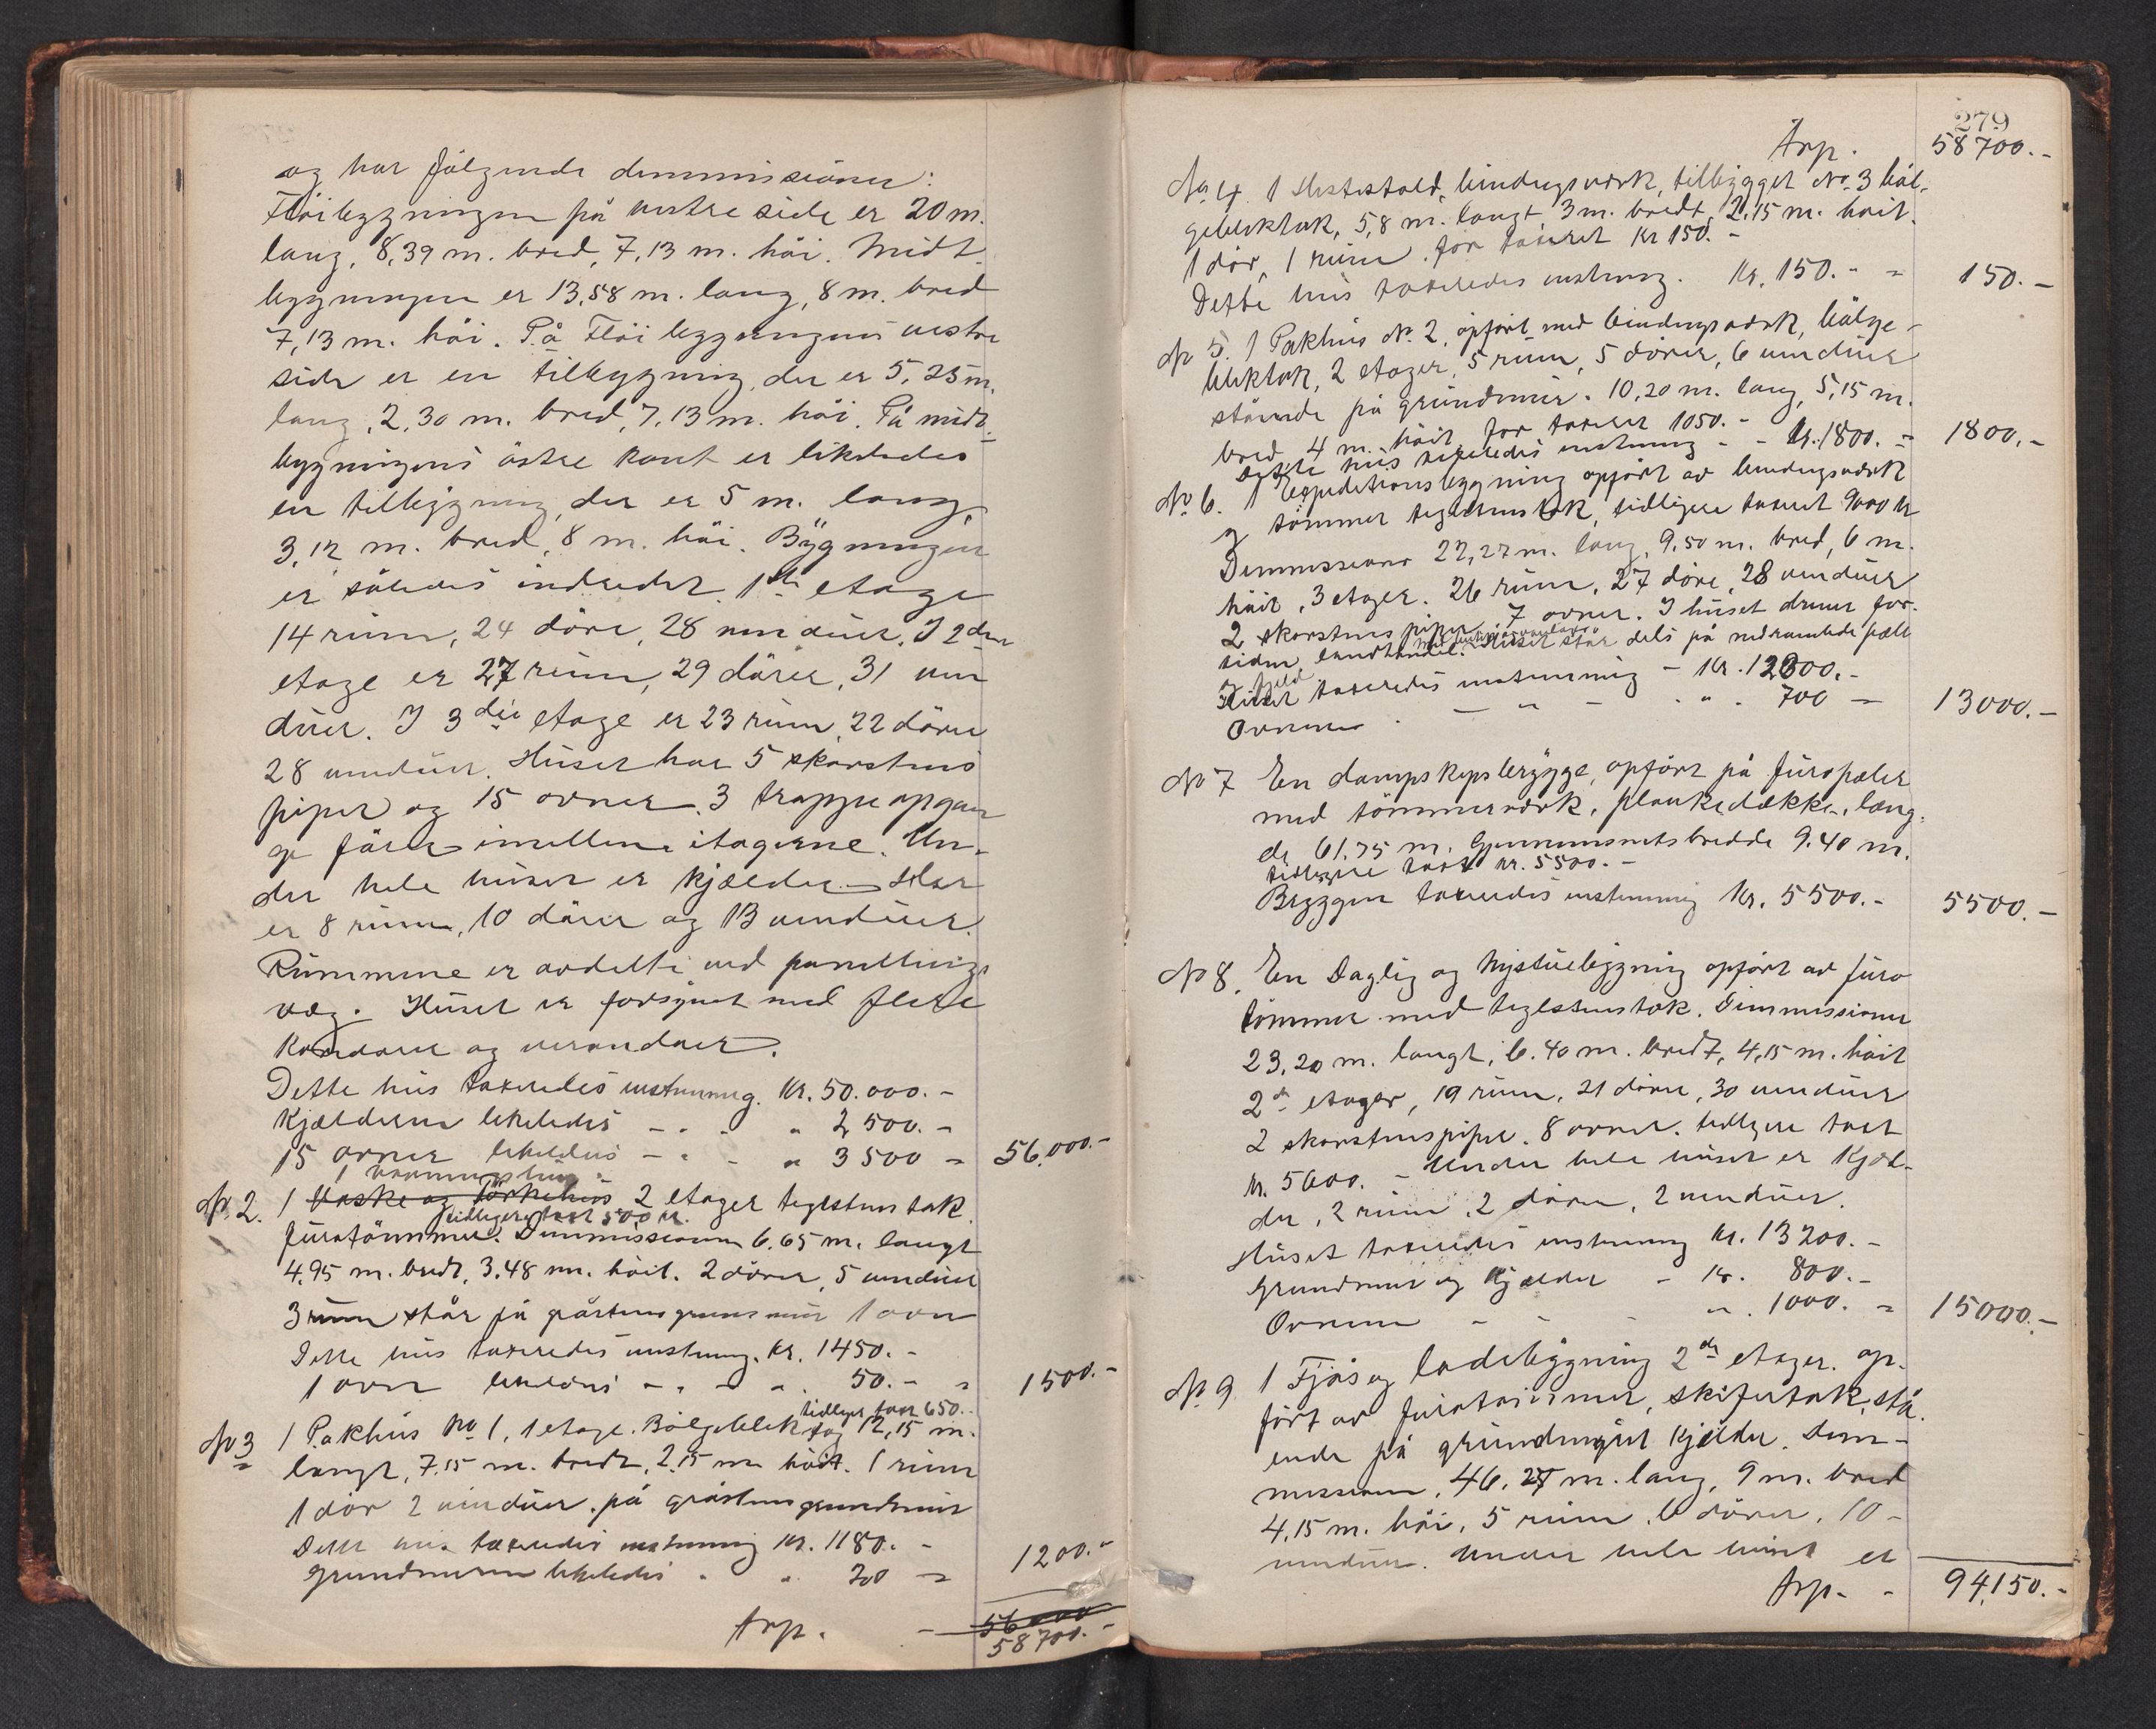 og har følgende dimmissioner:
Fløibygningen på vestre side er 20 m.
lang, 8,39 m. bred, 7,13 m. høi. Midt
bygningen er 13,58 m. lang, 8 m. bred
7,13 m. høi. På Fløi bygningens vestre
side er en tilbygning, der er 5,25 m.
lang, 2,30 m. bred, 7,13 m. høi. På midt
bygningens østre kant er likeledes
en tilbygning, der er 5 m. lang,
3,12 m. bred, 8 m. høi. Bygningen
er således indredet. 1ste etage
14 rum, 24 döre, 28 vinduer. I 2den
etage er 27 rum, 29 dörer, 31 vin
duer. I 3die etage er 23 rum, 22 döre
28 vinduer. Huset har 5 skorstens
piper og 15 ovner. 3 trappe opgan
ge förer imellem etagerne. Un-
der hele huset er kjælder. Her
er 8 rum, 10 dörer og 13 vinduer.
Rummene er avdelte ved panelings
væg. Huset er forsynet med flere
Korridorer og verandaer.
Dette hus taxeredes enstemmig. Kr. 50.000.-
Kjælderen likeledes - - - " 2500.-
15 ovner likeledes - - - " 3500 = 56.000.-
1 
No 2. 1 Vaske og Tørkehus 2 etager teglstens tak
tidligere taxt 500 kr.
Furutømmer. Dimmissioner 6.65 m. langt
4,95 m. bredt, 3.48 m. høit. 2 dörer, 5 vinduer
3 rum står på gråstens grundmur 1 ovn
Dette hus taxeredes enstemmig. Kr. 1450.-
1 ovn likeledes - - - " 50.- = 1500.-
tidligere taxt 650.-
No 3 1 Pakhus No 1, 1 etage. Bölgeblektag 12,15 m.
langt, 7.15 m. bredt, 2.15 m høit. 1 rum
1 dör 2 vinduer. på gråstens grundmur
Dette hus taxeredes enstemmig Kr. 1180.-
Grundmuren likeledes - " 20 = 1200.-
Trp. - 56000
58700.-
279
Trp. 58700.-
No 4. 1 Hestestald, bindingsværk, tilbygget No 3 böl-
geblektak, 5,8 m. langt 3 m. bredt, 2,15 m. høit.
1 dör, 1 rum. før taxeret Kr 150.-
Dette hus taxeredes enstemmig. Kr. 150.- = 150.-
No 5. 1 Pakhus No 2, opført med bindingsværk, bölge-
blektak, 2 etager, 5 rum, 5 dörer, 6 vinduer
stående på grundmur. 10,20 m. lang, 5,15 m.
bred, 4 m. høit, før taxeret 1050.-
Dette hus taxeredes enstemmig - - Kr. 1800. = 1800.-
No 6. 1 Expeditionsbygning opfört av bindingsværk
og tömmer teglstenstak, tidligere taxeret 9000 kr
Dimmissioner 22,27 m. lang, 9.50 m. bred, 6 m.
høit, 3 etager. 26 rum, 27 döre, 28 vinduer
2 skorstens piper 7 ovner. I huset drives for-
siden landhandel. Huset står dels på nedramlede pæler
og fjeld
Huset taxeredes enstemmig - Kr. 12300.-
Ovnene - - " - - " 700 = 13000.-
No 7 En dampskipsbrygge, opfört på furupæler
med tömmerværk, plankedække, læng-
de 61.75 m. Gjennemsnitsbredde 9.40 m.
tidligere taxt kr. 5500.-
Bryggen taxeredes enstemmig Kr. 5500.- 5500.-
No 8. En Daglig og Nystuebygning opfört av furu
tömmer med teglstenstak. Dimmissioner
23,20 m. langt, 6.40 m. bredt, 4,15 m. høit
2de etager, 19 rum, 21 dörer, 30 vinduer
2 skorstenspiper. 8 ovner. tidligere taxt
kr. 5600. - Under hele huset er Kjæl-
der, 2 rum, 2 dörer, 2 vinduer.
Huset taxeredes enstemmig Kr. 13200.-
Grundmur og Kjælder - Kr. 800.-
Ovnene - - - " 1000. = 15000.-
No 9 1 Fjøs og ladebygning 2de etager. op-
fört av furutømmer, skifertak, stå-
ende på grundmuret kjelder. Dim-
missioner, 46.27 m. lang, 9 m. bred
4,15 m. høi, 5 rum, 6 dörer, 10
vinduer. Under hele huset er
Trp. - 94,150.-